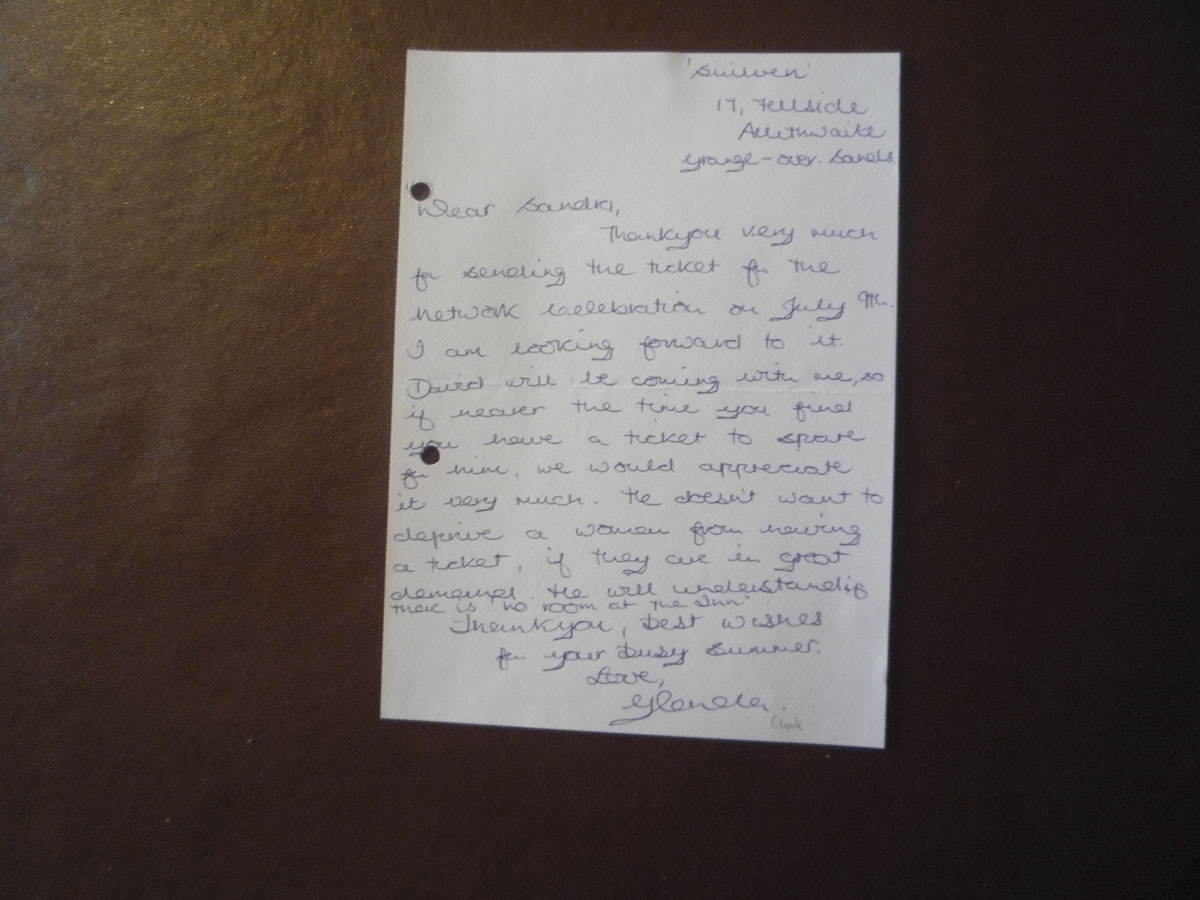 'Suilven'
17, Fellside
Allithwaite
Grange-over-Sands.
Dear Sandra,
Thankyou very much
for sending the ticket for the
network celebration on July 9th.
I am looking forward to it.
David will be coming with me, so
if nearer the time you find
you have a ticket to spare
for him, we would appreciate
it very much. He doesn't want to
deprive a woman from having
a ticket, if they are in great
demand. He will understand if
there is "no room at the Inn".
Thankyou, best wishes
for your busy summer.
Love,
Glenda.
Clark